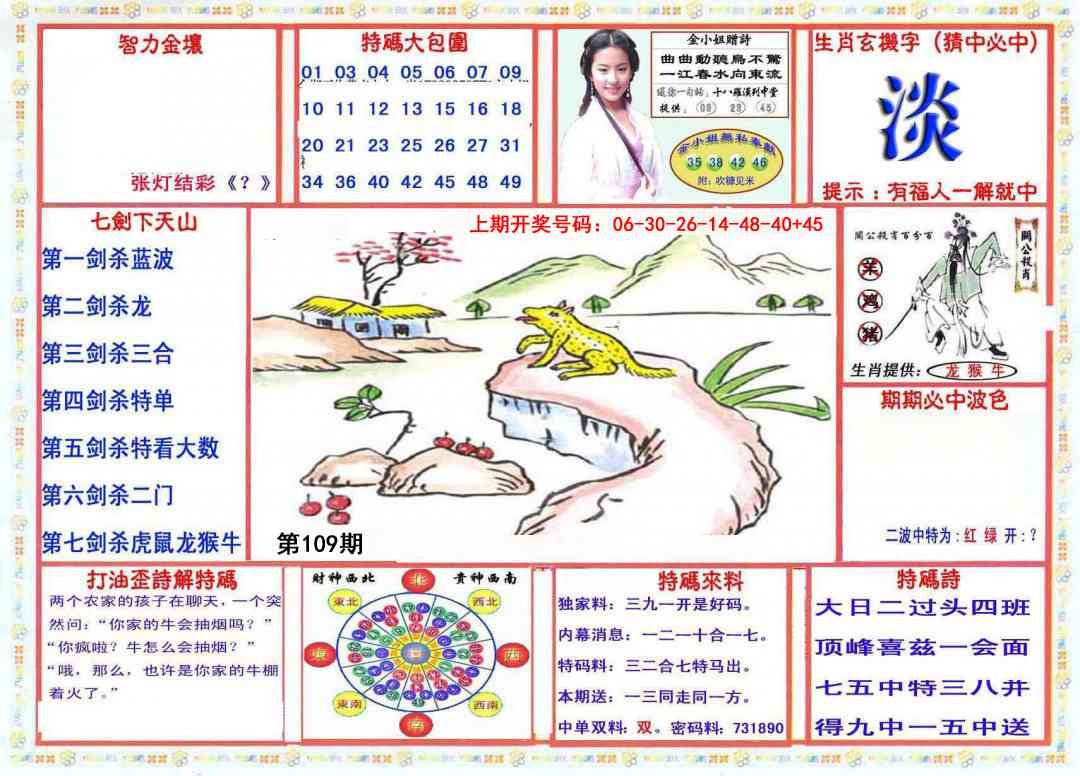 智力金壤
张灯结彩《？》
特碼大包圍
01 03 04 05 06 07 09
10 11 12 13 15 16 18
20 21 23 25 26 27 31
34 36 40 42 45 48 49
金小姐赠詩
曲曲動聽鳥不驚
一江春水向東流
送你一句話：十八羅漢列中堂
提供：(09) (23) (45)
金小姐無私奉獻
35 38 42 46
附：吹糠见米
生肖玄機字（猜中必中）
淡
提示：有福人一解就中
七劍下天山
第一剑杀蓝波
第二剑杀龙
第三剑杀三合
第四剑杀特单
第五剑杀特看大数
第六剑杀二门
第七剑杀虎鼠龙猴牛
上期开奖号码：06-30-26-14-48-40+45
第109期
関公殺肖百分百
関公殺肖
羊
鸡
猪
生肖提供：龙 猴 牛
期期必中波色
二波中特为：红 绿 开：？
打油歪詩解特碼
两个农家的孩子在聊天，一个突
然问：“你家的牛会抽烟吗？”
“你疯啦？牛怎么会抽烟？”
“哦，那么，也许是你家的牛棚
着火了。”
财神西北 贵神西南
北
東北 西北
東 西
東南 西南
南
特碼來料
独家料：三九一开是好码。
内幕消息：一二一十合一七。
特码料：三二合七特马出。
本期送：一三同走同一方。
中单双料：双。密码料：731890
特碼詩
大日二过头四班
顶峰喜兹一会面
七五中特三八并
得九中一五中送